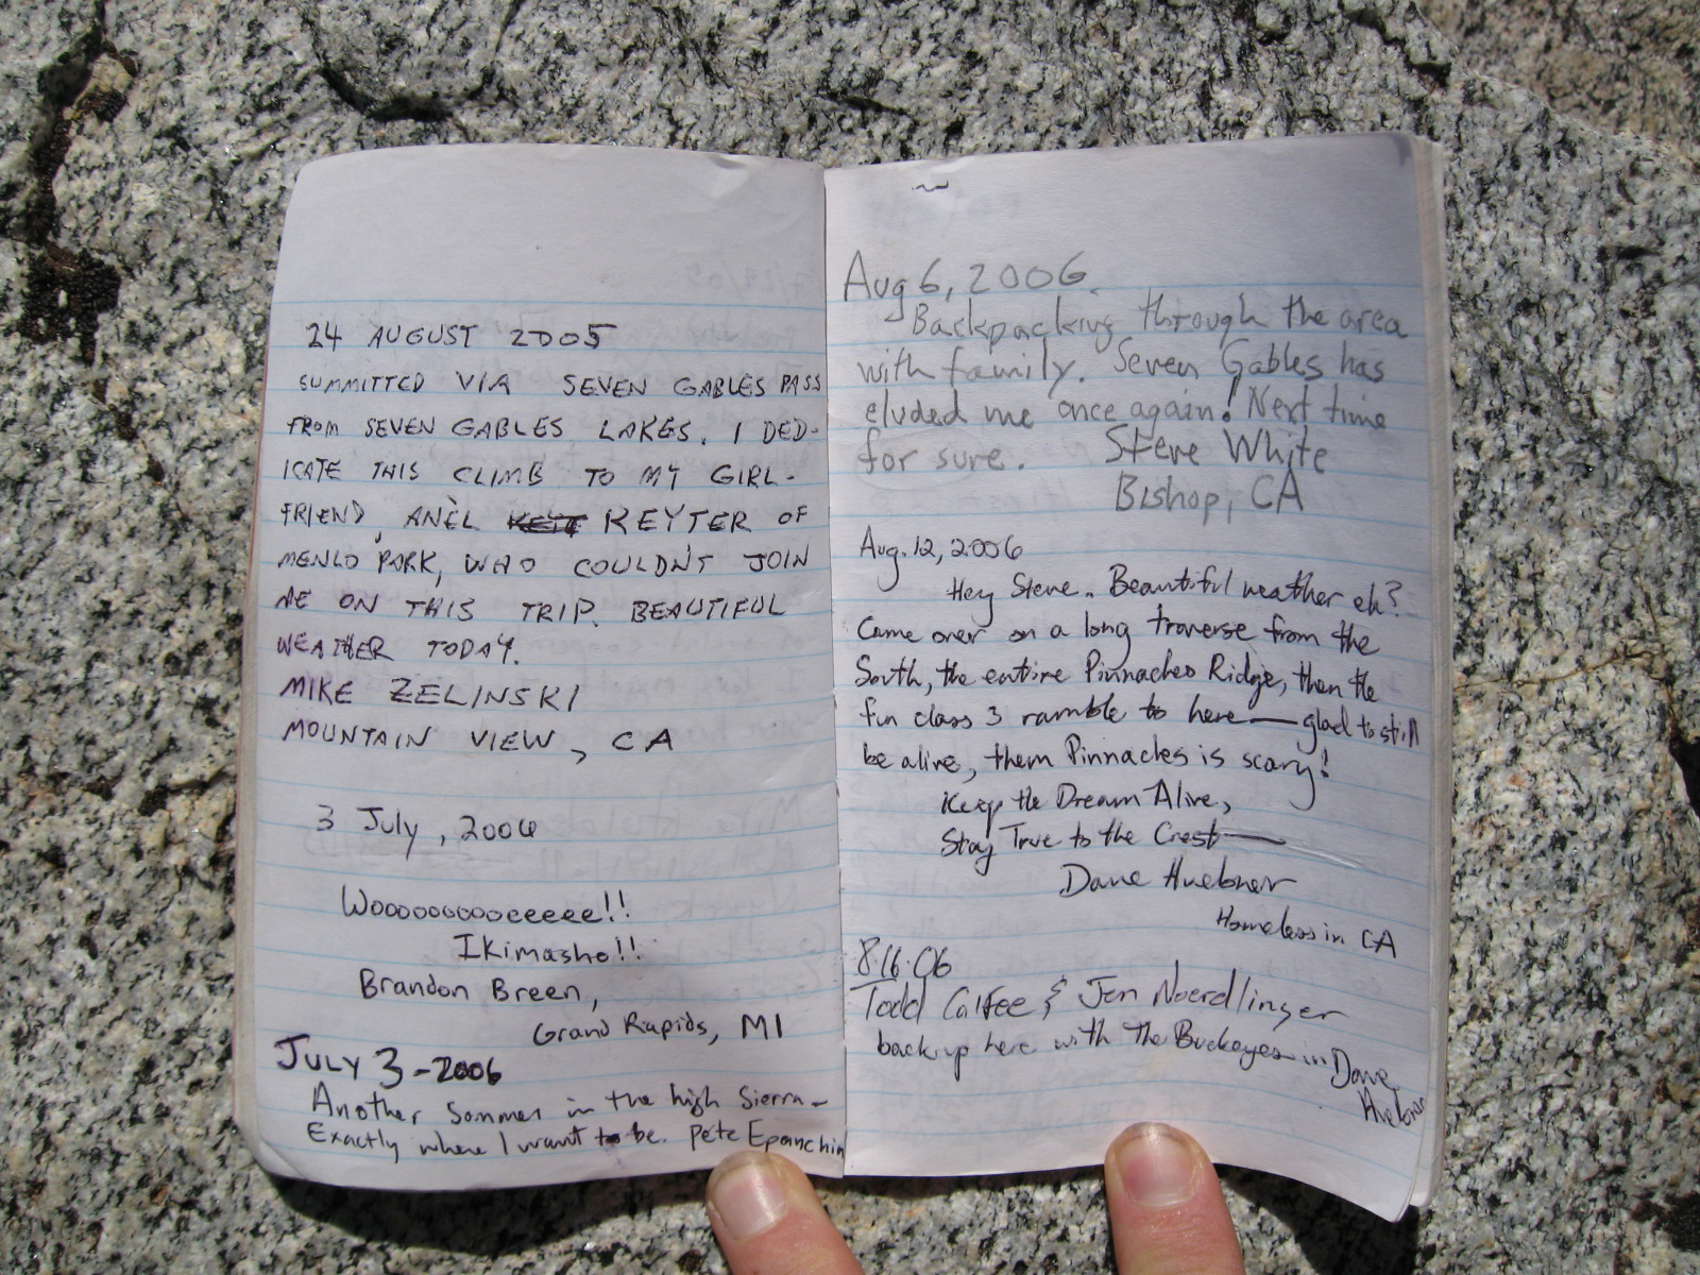 24 AUGUST 2005
SUMMITTED VIA SEVEN GABLES PASS
FROM SEVEN GABLES LAKES. I DED-
ICATE THIS CLIMB TO MY GIRL-
FRIEND, ANÈL KEYTER OF
MENLO PARK, WHO COULDN'T JOIN
ME ON THIS TRIP. BEAUTIFUL
WEATHER TODAY.
MIKE ZELINSKI
MOUNTAIN VIEW, CA
3 July, 2006
Woooooooooeeeee!!
Ikimasho!!
Brandon Breen,
Grand Rapids, MI
JULY 3-2006
Another Sommer in the high Sierra-
Exactly where I want to be. Pete Epanchin
Aug 6, 2006.
Backpacking through the area
with family. Seven Gables has
eluded me once again! Next time
for sure. Steve White
Bishop, CA
Aug. 12, 2006
Hey Steve.. Beautiful weather eh?
Came over on a long traverse from the
South, the entire Pinnacles Ridge, then the
fun class 3 ramble to here — glad to still
be alive, them Pinnacles is scary!
Keep the Dream Alive,
Stay True to the Crest —
Dave Huebner
Homeless in CA
8.16.06
Todd Calfee & Jen Noerdlinger
back up here with the Buckeyes... Dave
Huebner